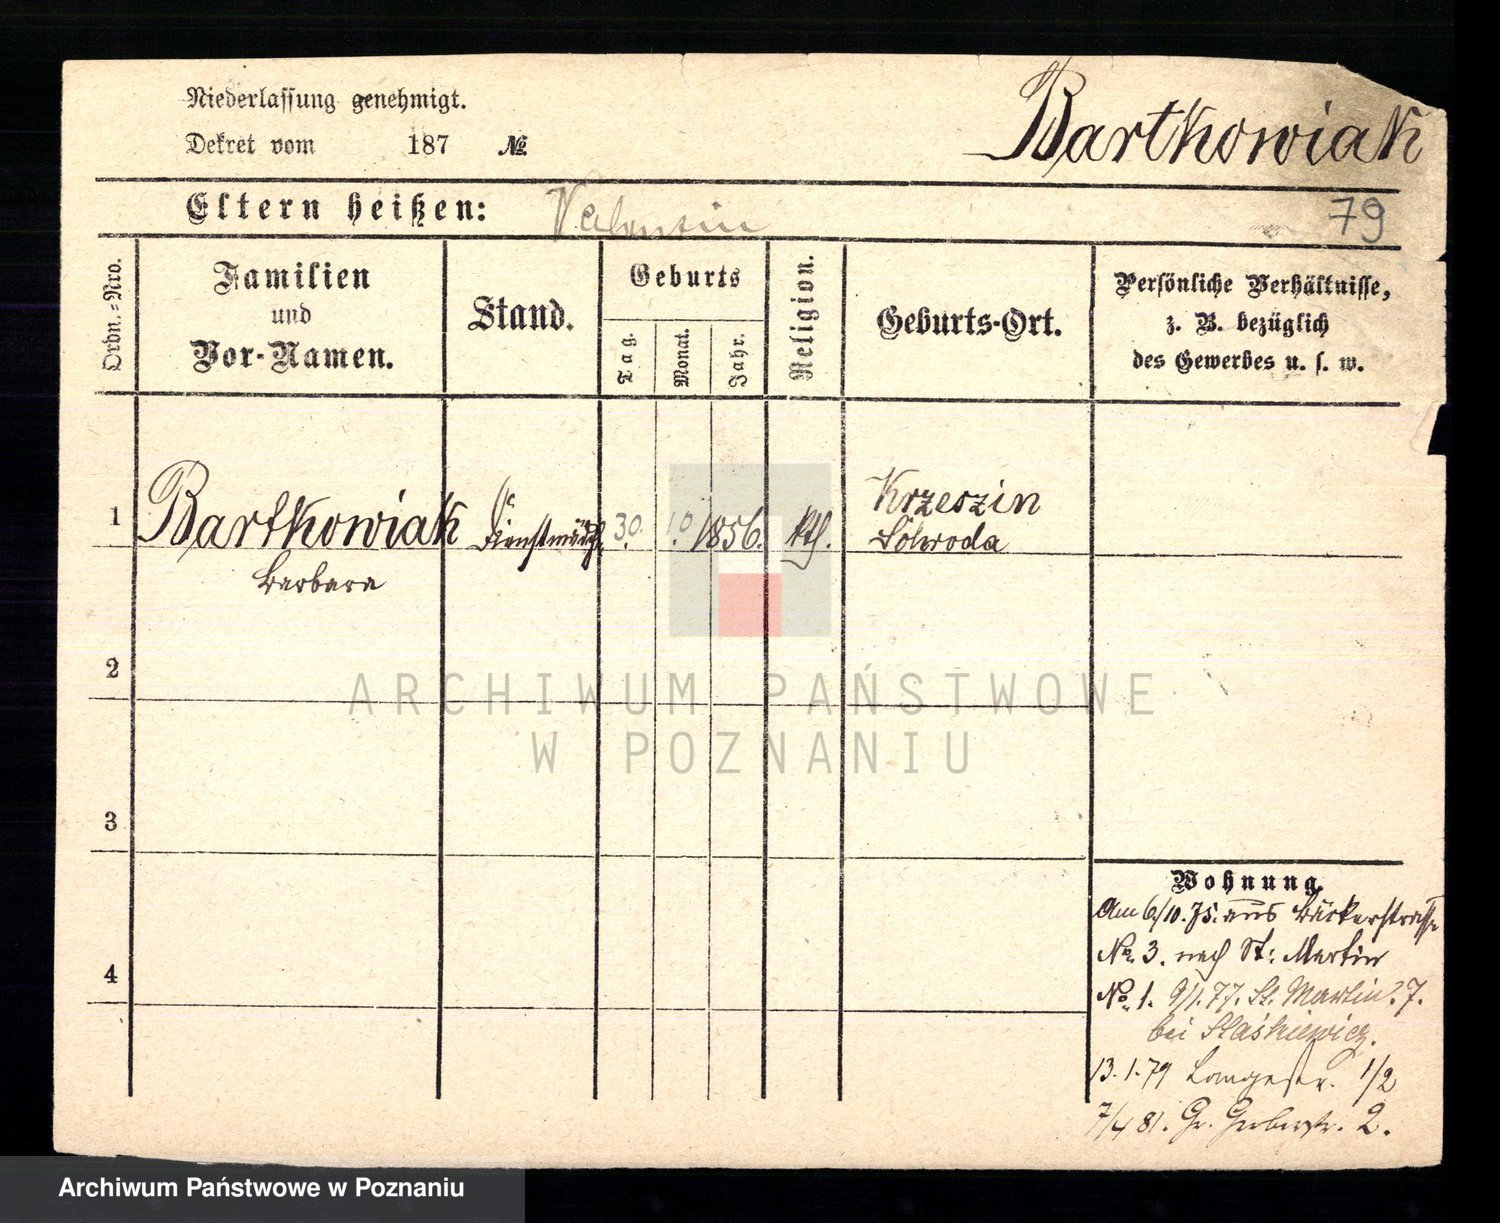 Niederlassung genehmigt.
Bartkowiak
Dekret vom 187 №
Eltern heißen: Valentin
79
Ordn.-Nro.
Familien
und
Vor-Namen.
Stand.
Geburts
Tag.
Monat.
Jahr.
Religion.
Geburts-Ort.
Persönliche Verhältnisse,
z. B. bezüglich
des Gewerbes u. s. w.
1 Bartkowiak 30. 10. 1856. kth. Krzeszin
Barbara
Schroda
2
3
4
Wohnung.
Am 6/10.75. aus Bäckerstrasse
No. 3. nach St: Martin
No. 1. 9/1.77. St. Martin 7.
bei Staśkiewicz.
13.1.79 Langestr. 1/2
7/4 81. Gr. Gerberstr. 2.
ARCHIWUM PAŃSTWOWE
W POZNANIU
Archiwum Państwowe w Poznaniu